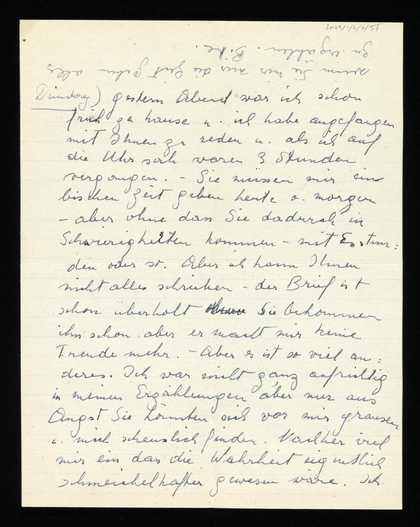 zu erzählen. Bitte.
wenn Sie mir nur die Zeit geben alles
Dienstag) gestern Abend war ich schon
früh zu hause u. ich habe angefangen
mit Ihnen zu reden u. als ich auf
die Uhr sah waren 3 Stunden
vergangen. – Sie müssen mir ein
bischen Zeit geben heute o. morgen
– aber ohne dass Sie dadurch in
Schwierigkeiten kommen – mit Estun:
den oder so. Aber ich kann Ihnen
nicht alles schreiben – der Brief ist
schon überholt Sie bekommen
ihn schon aber er macht mir keine
Freude mehr. – Aber es ist so viel an:
deres. Ich war nicht ganz aufrichtig
in meinen Erzählungen aber nur aus
Angst Sie könnten sich vor mir grausen
u. mich scheuslich finden. Nachher viel
mir ein das die Wahrheit eigentlich
schmeichelhafter gewesen wäre. Ich